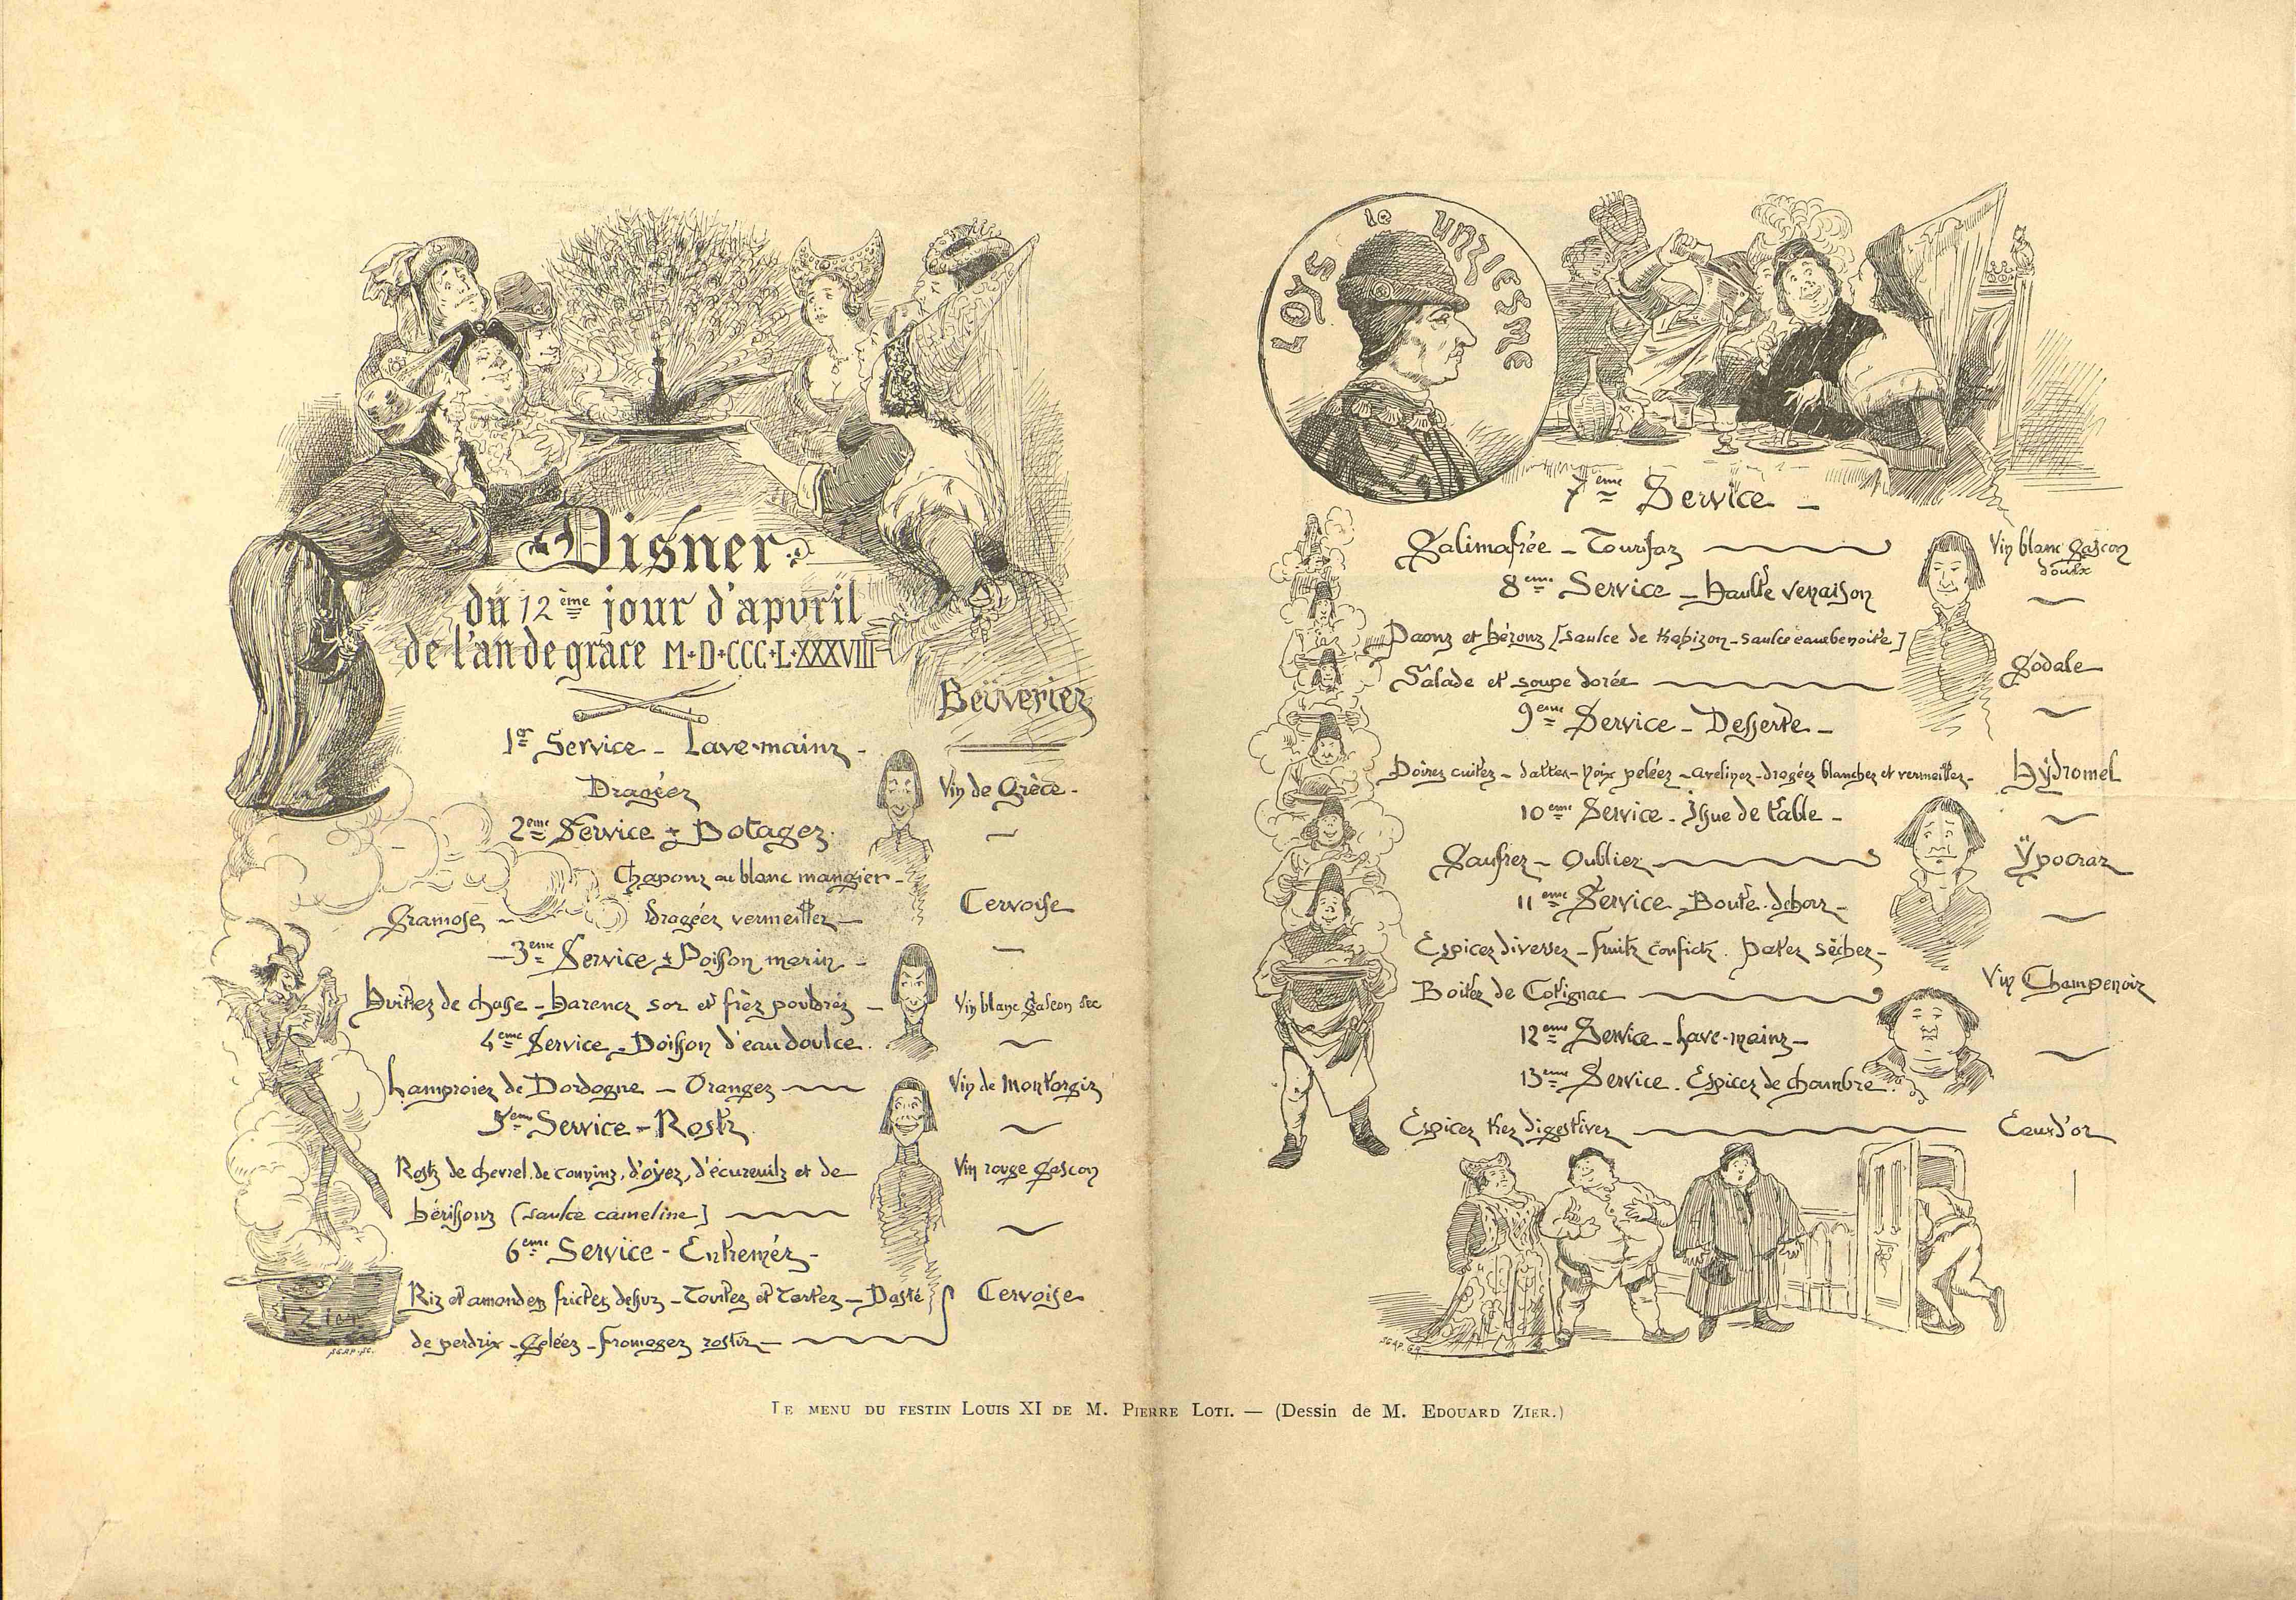 Disner
du 12ème jour d'apvril
de l'an de grace M·D·CCC·L·XXXVIII
Beüveriez
1er Service - Lave-mainz -
Dragéez
Vin de Grèce -
2eme Service - Potagez
Chaponz au blanc mangier -
Gramose - Dragéez vermeillez -
Cervoise
3eme Service - Poisson marin -
Huitrez de chasse - Harencz sor et friez poudrez -
Vin blanc Gascon sec
4eme Service - Poisson d'eau doulce.
Lamproiez de Dordogne - Orangez
Vin de Montorgiz
5eme Service - Rostz
Rostz de chevrel, de conninz, d'oyez, d'écureuilz et de
Vin rouge Gascon
hérissonz (saulce cameline)
6eme Service - Entremèz -
Riz et amondez frictez dessuz - Tourtez et Tartez - Pasté
Cervoise
de perdrix - Geléez - Fromagez rostiz -
Zier
SGAP. SC.
LOYS le UNZIESME
7eme Service -
Galimafrée - Tourifaz
Vin blanc Gascon
doulx
8eme Service - Haulte venaison
Paonz et héronz (saulce de trapizon - saulce eau benoite)
Salade et soupe dorée
Godale
9eme Service - Desserte -
Poirez cuitez - dattez - noix peléez - avelinez - dragéez blanchez et vermeillez -
Hydromel
10eme Service - Issue de table -
Gaufrez - Oubliez
Ypocraz
11eme Service - Boute-dehorz -
Espicez diversez - fruitz confictz. Patez sèchez -
Boitez de Cotignac
Vin Champenoiz
12eme Service - Lave-mainz -
13eme Service. Espicez de chambre.
Espicez trez digestivez
Eau d'or
SGAP.
LE MENU DU FESTIN LOUIS XI DE M. PIERRE LOTI. — (Dessin de M. EDOUARD ZIER.)